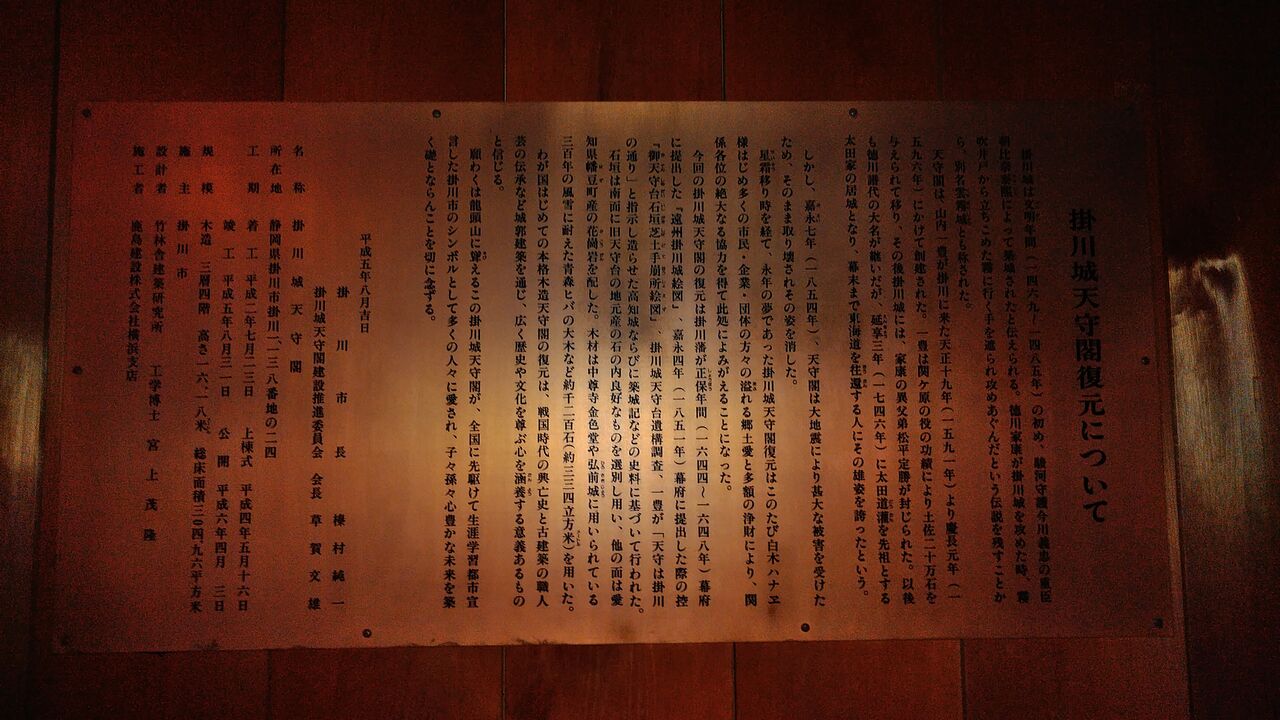 掛川城天守閣復元について
掛川城は文明年間（一四六九～一四八五年）の初め、駿河守護今川義忠の重臣
朝比奈泰熈によって築城されたと伝えられる。徳川家康が掛川城を攻めた時、霧
吹井戸から立ちこめた霧に行く手を遮られ攻めあぐんだという伝説を残すことか
ら、別名雲霧城とも称された。
天守閣は、山内一豊が掛川に来た天正十九年（一五九一年）より慶長元年（一
五九六年）にかけて創建された。一豊は関ケ原の役の功績により土佐二十万石を
与えられて移り、その後掛川城には、家康の異父弟松平定勝が封じられた。以後
も徳川勝代の大名が継いだが、延享三年（一七四六年）に太田道灌を先祖とする
太田家の居城となり、幕末まで東海道を往還する人にその雄姿を誇ったという。
しかし、嘉永七年（一八五四年）、天守閣は大地震により甚大な被害を受けた
ため、そのまま取り壊されその姿を消した。
星霜移り時を経て、永年の夢であった掛川城天守閣復元はこのたび白木ハナヱ
様はじめ多くの市民・企業・団体の方々の溢れる郷土愛と多額の浄財により、関
係各位の絶大なる協力を得て此処によみがえることになった。
今回の掛川城天守閣の復元は掛川藩が正保年間（一六四四～一六四八年）幕府
に提出した『遠州掛川城絵図』、嘉永四年（一八五一年）幕府に提出した際の控
『御天守台石垣芝土手崩所絵図』、掛川城天守台遺構調査、一豊が「天守は掛川
の通り」と指示し造らせた高知城ならびに築城記などの史料に基づいて行われた。
石垣は南面に旧天守台の地元産の石の内良好なものを選別し用い、他の面は愛
知県幡豆町産の花崗岩を配した。木材は中尊寺金色堂や弘前城に用いられている
三百年の風雪に耐えた青森ヒバの大木など約千二百石（約三三四立方米）を用いた。
わが国はじめての本格木造天守閣の復元は、戦国時代の興亡史と古建築の職人
芸の伝承など城郭建築を通じ、広く歴史や文化を尊ぶ心を涵養する意義あるもの
と信じる。
願わくは龍頭山に聳えるこの掛川城天守閣が、全国に先駆けて生涯学習都市宣
言した掛川市のシンボルとして多くの人々に愛され、子々孫々心豊かな未来を築
く礎とならんことを切に念ずる。
平成五年八月吉日
掛川市長　榛村純一
掛川城天守閣建設推進委員会　会長　草賀文雄
名称　掛川城天守閣
所在地　静岡県掛川市掛川一、一三八番地の二四
工期　着工　平成二年七月二三日　上棟式　平成四年五月十六日
竣工　平成五年八月三一日　公開　平成六年四月三日
規模　木造　三層四階　高さ一六・一八米、総床面積三〇四・九六平方米
施主　掛川市
設計者　竹林舎建築研究所　工学博士　宮上茂隆
施工者　鹿島建設株式会社横浜支店